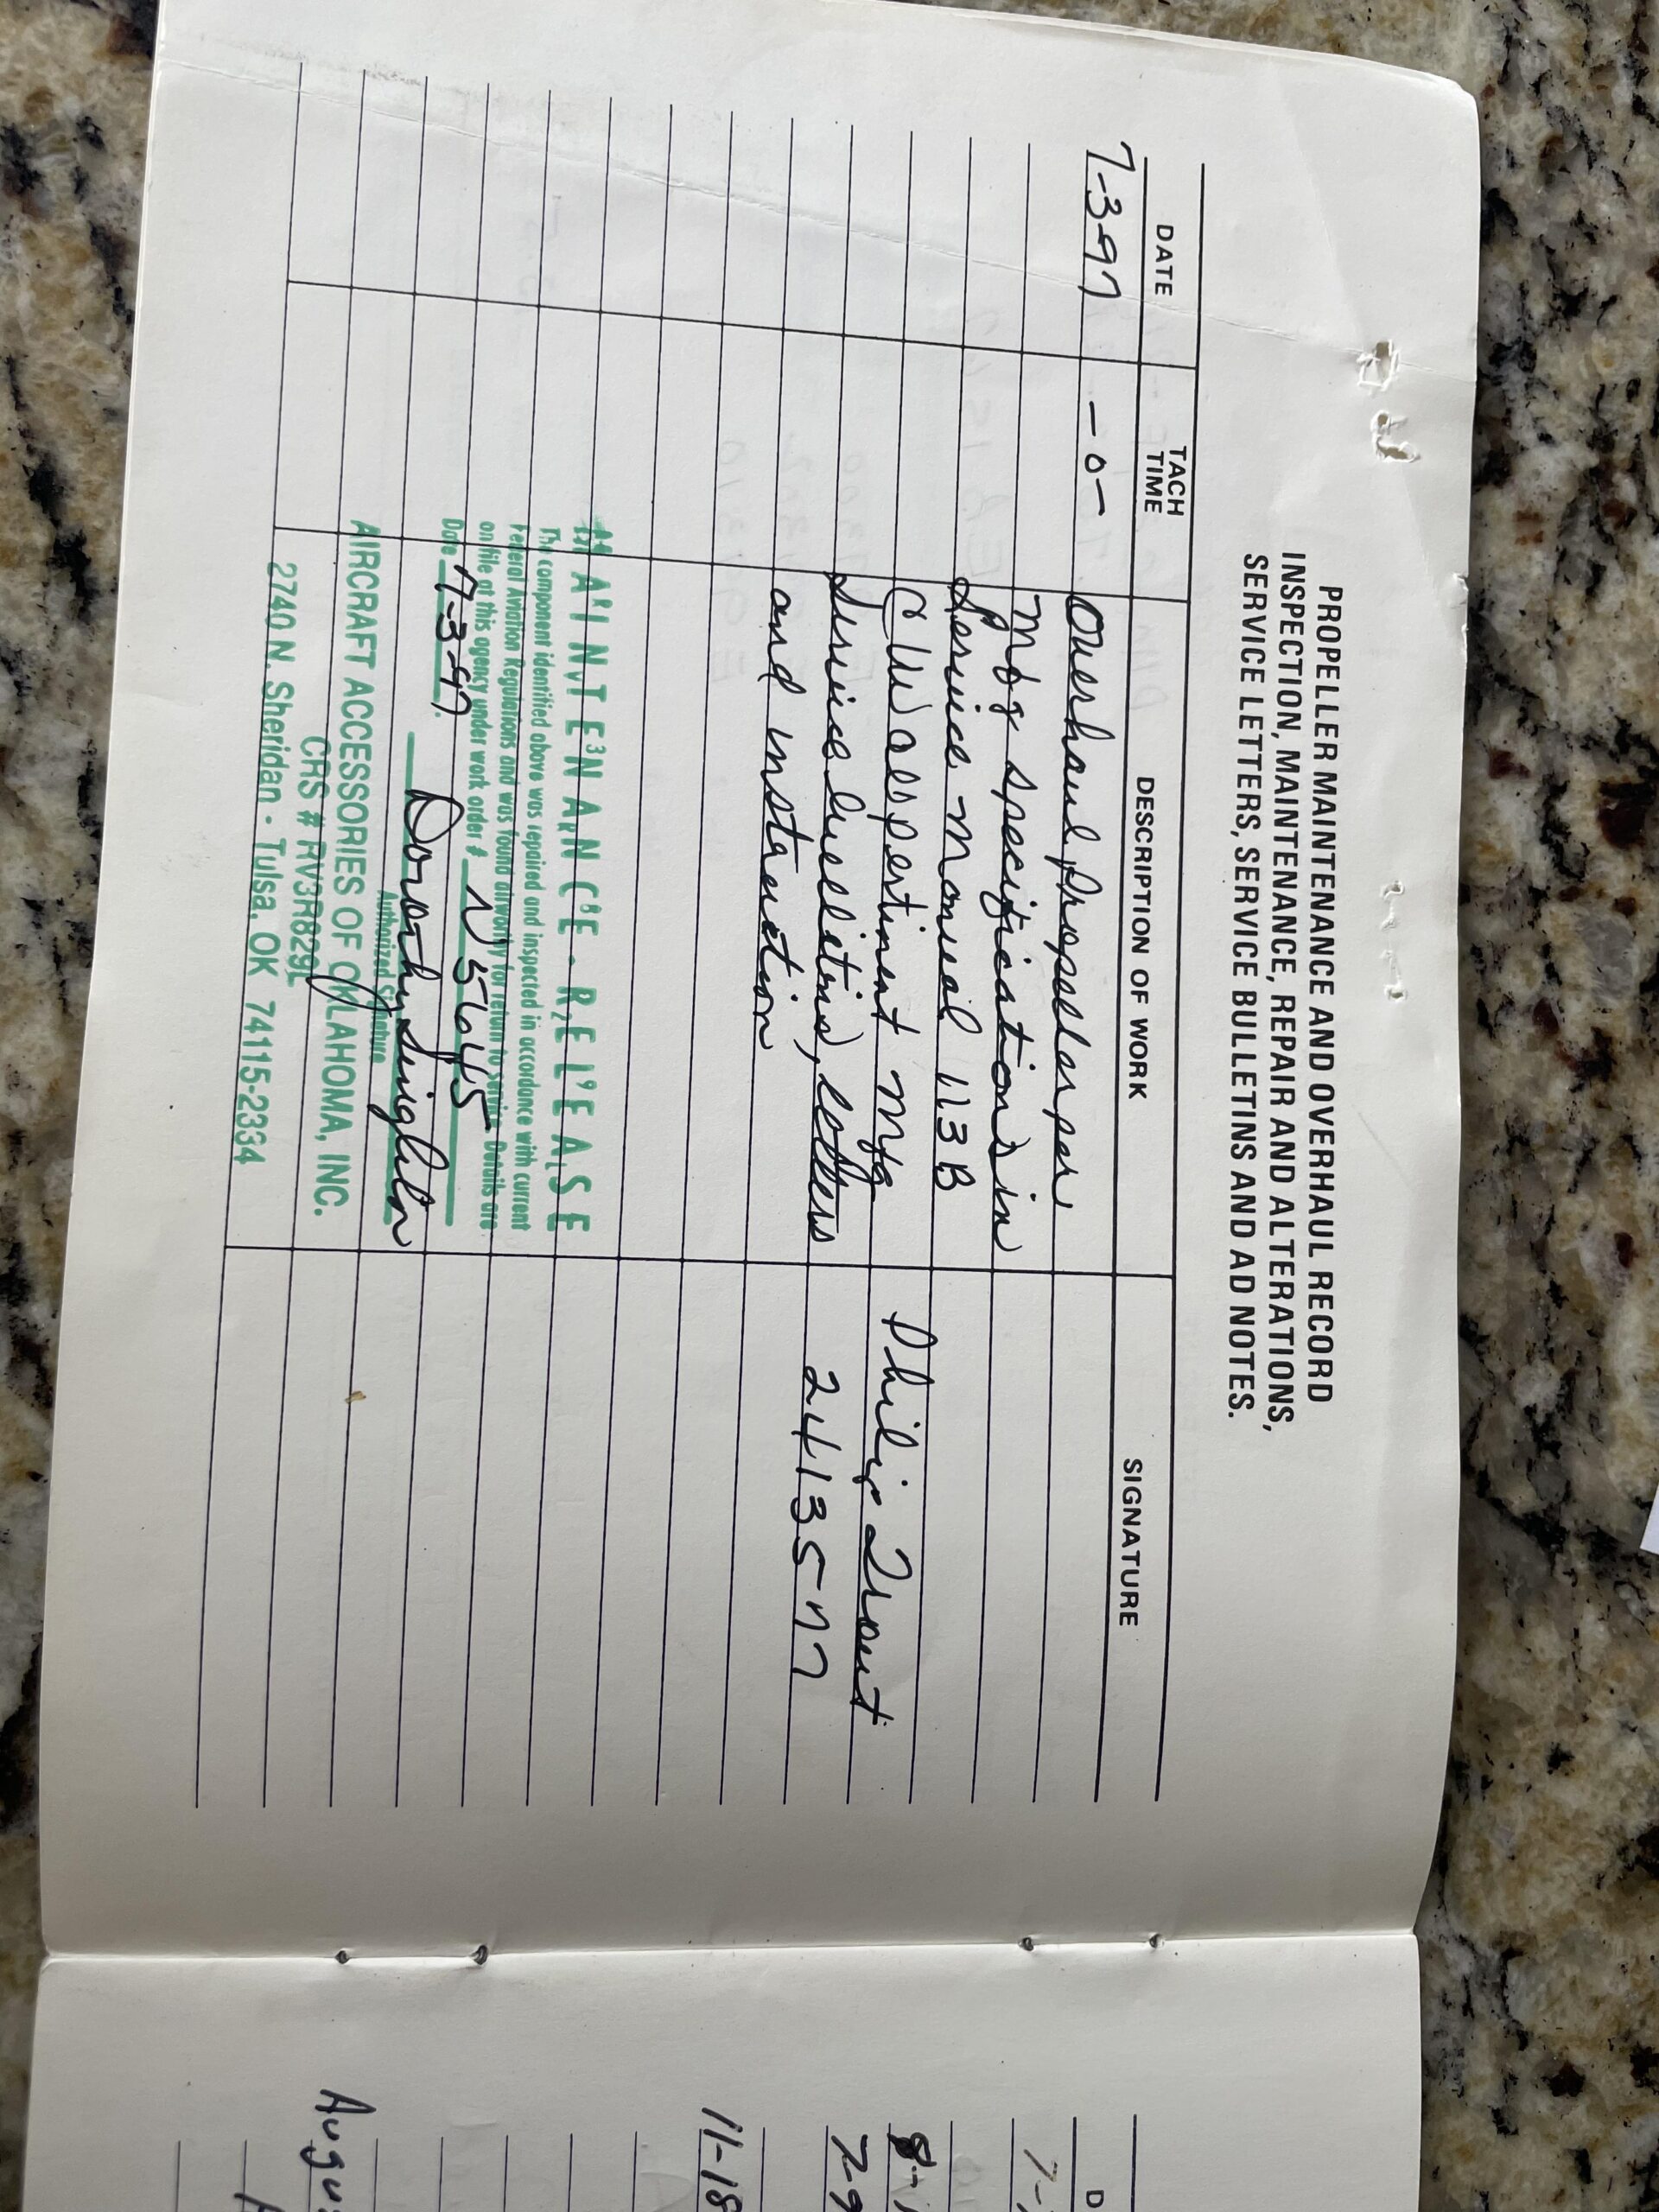 PROPELLER MAINTENANCE AND OVERHAUL RECORD
INSPECTION, MAINTENANCE, REPAIR AND ALTERATIONS,
SERVICE LETTERS, SERVICE BULLETINS AND AD NOTES.
DATE TACH TIME DESCRIPTION OF WORK SIGNATURE
7-3-97 -0- Overhaul Propeller per
Mfg specifications in
Service Manual 113B
C/W all pertinent Mfg Philip
Service bulletins, letters 2413577
and instruction
MAINTENANCE - RELEASE
The component identified above was repaired and inspected in accordance with current
Federal Aviation Regulations and was found airworthy for return to service. Details are
on file at this agency under work order # N 55645
Date 7-3-97
Dorothy Singleton
Authorized Signature
AIRCRAFT ACCESSORIES OF OKLAHOMA, INC.
CRS # RV3R829L
2740 N. Sheridan - Tulsa, OK 74115-2334
D
7-
7-9
11-18
Augus